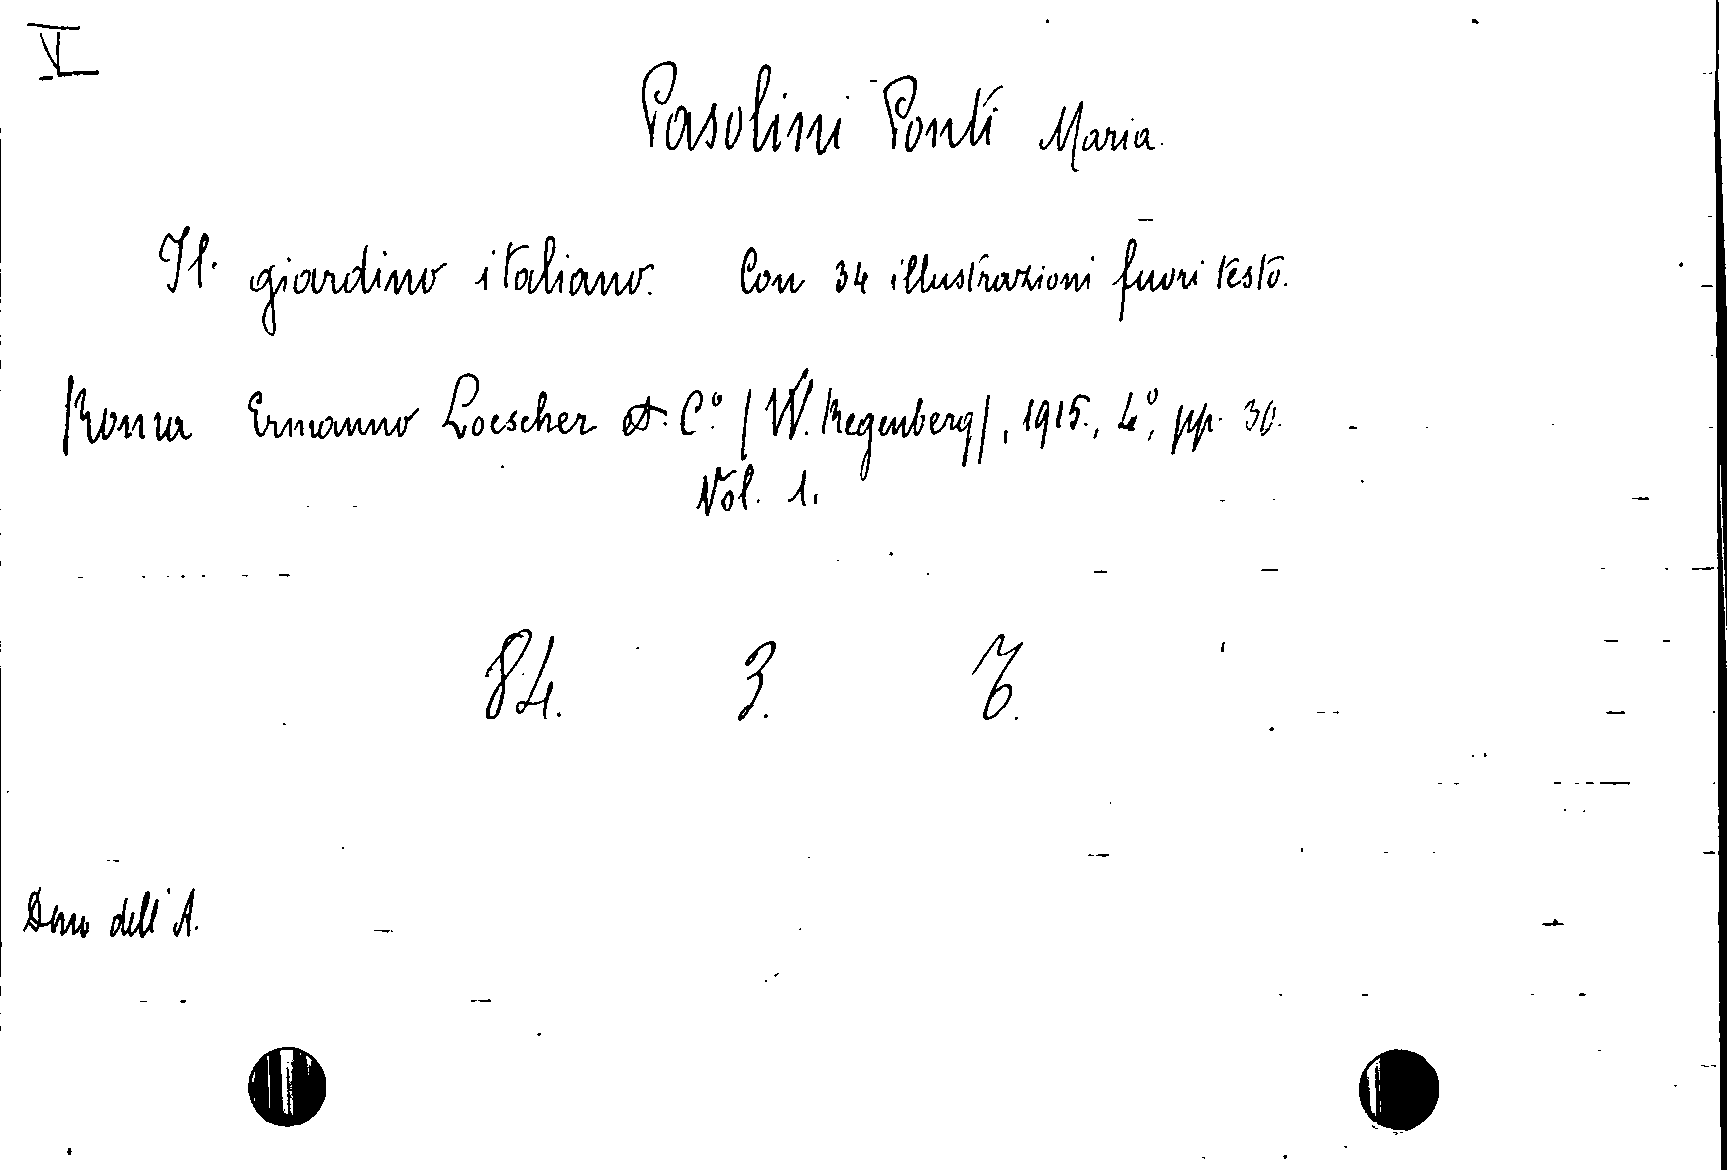 V
Pasolini Ponti Maria.
Il giardino italiano. Con 34 illustrazioni fuori testo.
Roma Ermanno Loescher & C.º (W. Regenberg), 1915., 4º, pp. 30.
Vol. 1.
84. 3. 6.
Dono dell'A.